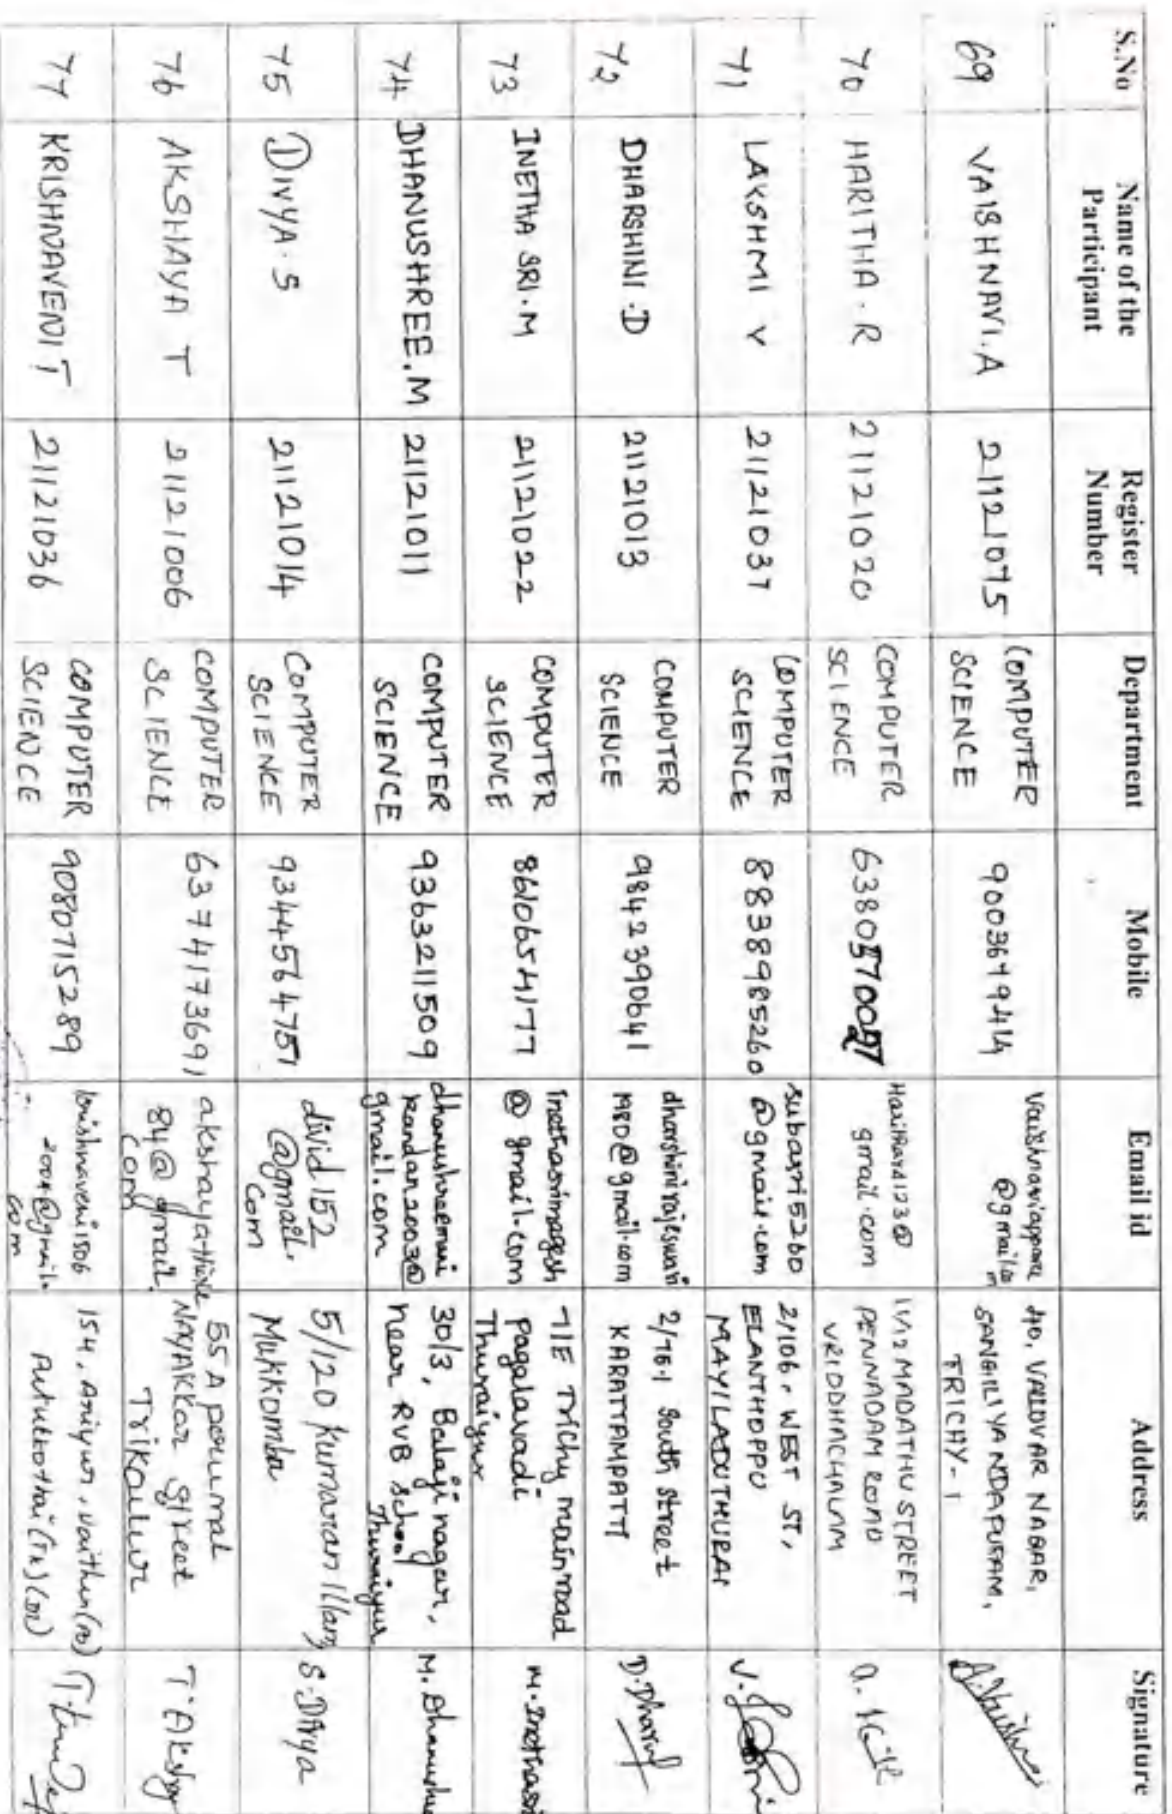 S.No Name of the Participant Register Number Department Mobile Email id Address Signature
69 VAISHNAVI.A 21121075 COMPUTER SCIENCE 9003679414 @gmail.com 40, VALLUVAR NAGAR, SANGILIYANDAPURAM, TRICHY-1
70 HARITHA.R 21121020 COMPUTER SCIENCE gmail.com 11/12 MADATHU STREET PENNADAM ROAD VRIDDHACHALAM
71 LAKSHMI V 21121037 COMPUTER SCIENCE 8838985260 subasri5260 @gmail.com 2/106, WEST ST, ELANTHOPPU MAYILADUTHURAI
72 DHARSHINI.D 21121013 COMPUTER SCIENCE 9842390641 dharshinirajeswari 1980@gmail.com 2/76-1 South Street KARATTAMPATTI D.Dharsh
73 INETHA SRI.M 21121022 COMPUTER SCIENCE 8610654177 inethasrimagesh @gmail.com 7/E Trichy main road Pagalavadi Thuraiyur M.Inethasri
74 DHANUSHREE.M 21121011 COMPUTER SCIENCE 9363211509 dhanushreemani kandan2003@ gmail.com 30/3, Balaji nagar, near RVB School Thuraiyur M.Dhanushr
75 DIVYA.S 21121014 COMPUTER SCIENCE 9344564751 divid152 @gmail. com 5/120 Kumaran Illam Mukkombu S.Divya
76 AKSHAYA T 21121006 COMPUTER SCIENCE 6374173691 84@gmail. com 55A perumal NAYAKKAR street T.Akshay
77 KRISHNAVENI T 21121036 COMPUTER SCIENCE 9080715289 krishnaveni1506 2004@gmail. com 154, Ariyur,